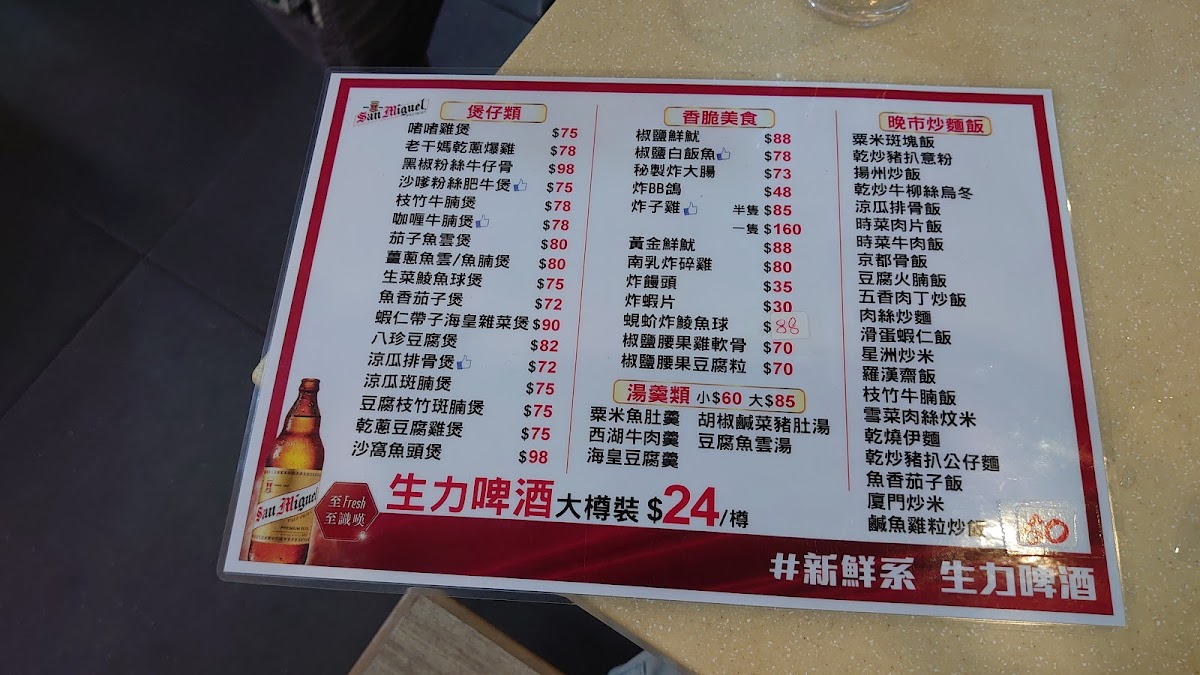 San Miguel
煲仔類
啫啫雞煲 $75
老干媽乾蔥爆雞 $78
黑椒粉絲牛仔骨 $98
沙嗲粉絲肥牛煲 $75
枝竹牛腩煲 $78
咖喱牛腩煲 $78
茄子魚雲煲 $80
薑蔥魚雲/魚腩煲 $80
生菜鯪魚球煲 $75
魚香茄子煲 $72
蝦仁帶子海皇雜菜煲 $90
八珍豆腐煲 $82
涼瓜排骨煲 $72
涼瓜斑腩煲 $75
豆腐枝竹斑腩煲 $75
乾蔥豆腐雞煲 $75
沙窩魚頭煲 $98
香脆美食
椒鹽鮮魷 $88
椒鹽白飯魚 $78
秘製炸大腸 $73
炸BB鴿 $48
炸子雞 半隻 $85
一隻 $160
黃金鮮魷 $88
南乳炸碎雞 $80
炸饅頭 $35
炸蝦片 $30
蜆蚧炸鯪魚球 $88
椒鹽腰果雞軟骨 $70
椒鹽腰果豆腐粒 $70
湯羹類 小$60 大$85
粟米魚肚羹 胡椒鹹菜豬肚湯
西湖牛肉羹 豆腐魚雲湯
海皇豆腐羹
晚市炒麵飯
粟米斑塊飯
乾炒豬扒意粉
揚州炒飯
乾炒牛柳絲烏冬
涼瓜排骨飯
時菜肉片飯
時菜牛肉飯
京都骨飯
豆腐火腩飯
五香肉丁炒飯
肉絲炒麵
滑蛋蝦仁飯
星洲炒米
羅漢齋飯
枝竹牛腩飯
雪菜肉絲炆米
乾燒伊麵
乾炒豬扒公仔麵
魚香茄子飯
廈門炒米
鹹魚雞粒炒飯
San Miguel
至Fresh
至識嘆
生力啤酒大樽裝 $24/樽
#新鮮系 生力啤酒